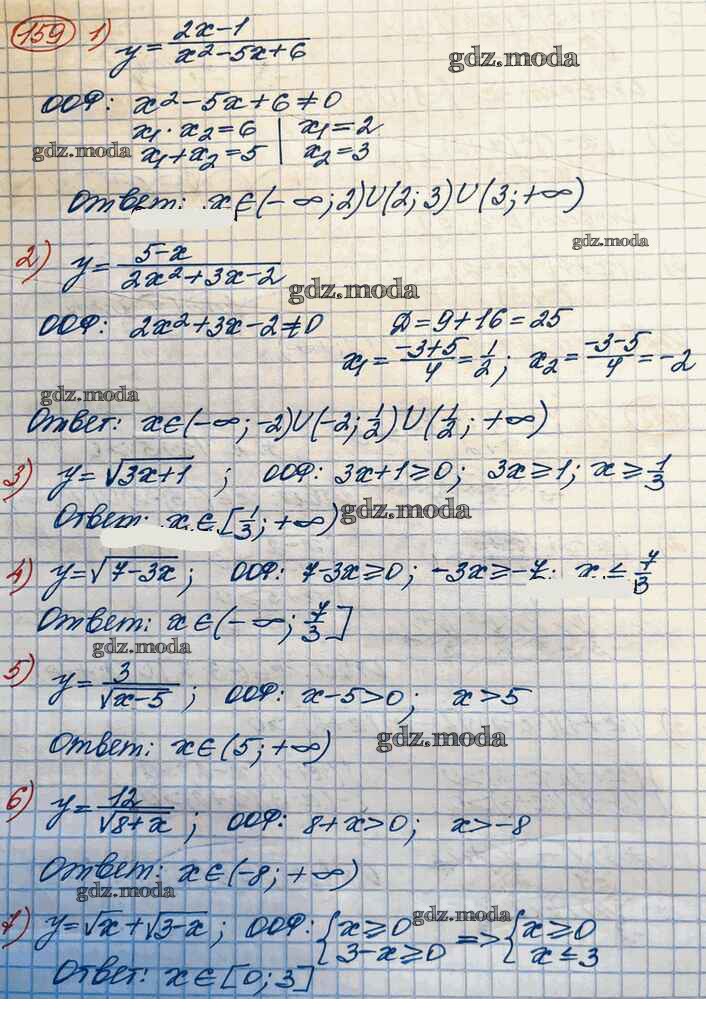 159 1) y = (2x-1)/(x²-5x+6)
gdz.moda
ООФ: x²-5x+6≠0
x₁·x₂=6 | x₁=2
gdz.moda
x₁+x₂=5 | x₂=3
Ответ: x∈(-∞;2)∪(2;3)∪(3;+∞)
gdz.moda
2) y = (5-x)/(2x²+3x-2)
gdz.moda
ООФ: 2x²+3x-2≠0 Д=9+16=25
x₁=(-3+5)/4=1/2; x₂=(-3-5)/4=-2
gdz.moda
Ответ: x∈(-∞;-2)∪(-2;1/2)∪(1/2;+∞)
3) y=√(3x+1) ; ООФ: 3x+1≥0; 3x≥1; x≥1/3
Ответ: x∈[1/3;+∞)
gdz.moda
4) y=√(7-3x) ; ООФ: 7-3x≥0; -3x≥-7; x≤7/3
Ответ: x∈(-∞;7/3]
gdz.moda
5) y=3/√(x-5) ; ООФ: x-5>0; x>5
Ответ: x∈(5;+∞)
gdz.moda
6) y=12/√(8+x) ; ООФ: 8+x>0; x>-8
Ответ: x∈(-8;+∞)
gdz.moda
gdz.moda
7) y=√x+√(3-x); ООФ: {x≥0 => {x≥0
3-x≥0 x≤3
Ответ: x∈[0;3]